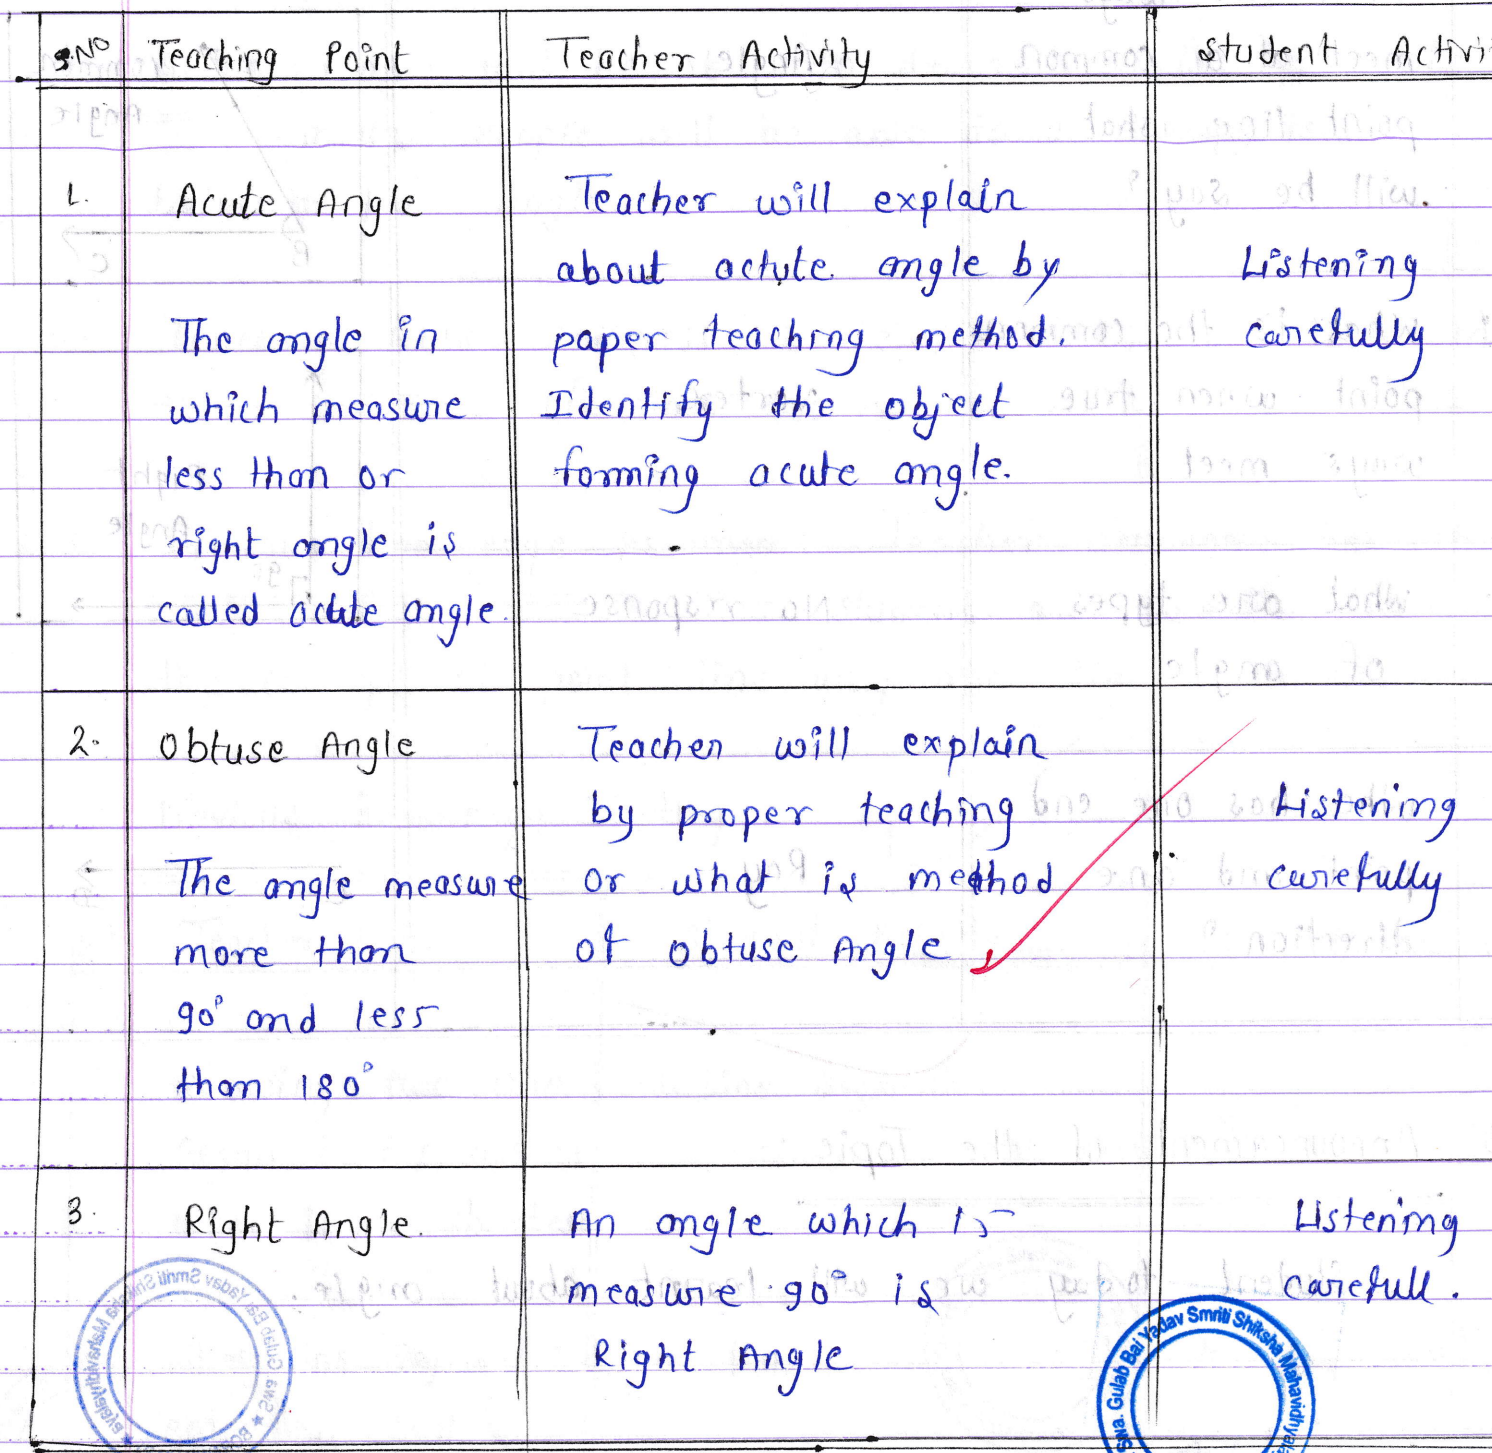 S.NO Teaching Point Teacher Activity Student Activi
1. Acute Angle
The angle in
which measure
less than or
right angle is
called acute angle.
Teacher will explain
about actute angle by
paper teaching method.
Identify the object
forming acute angle.
Listening
carefully
2. Obtuse Angle
The angle measure
more than
90° and less
than 180°
Teacher will explain
by proper teaching
or what is method
of obtuse Angle
Listening
carefully
3. Right Angle.
An angle which is
measure 90° is
Right Angle
Listening
carefull.
Swa. Gulab Bai Yadav Smriti Shiksha Mahavidhyala